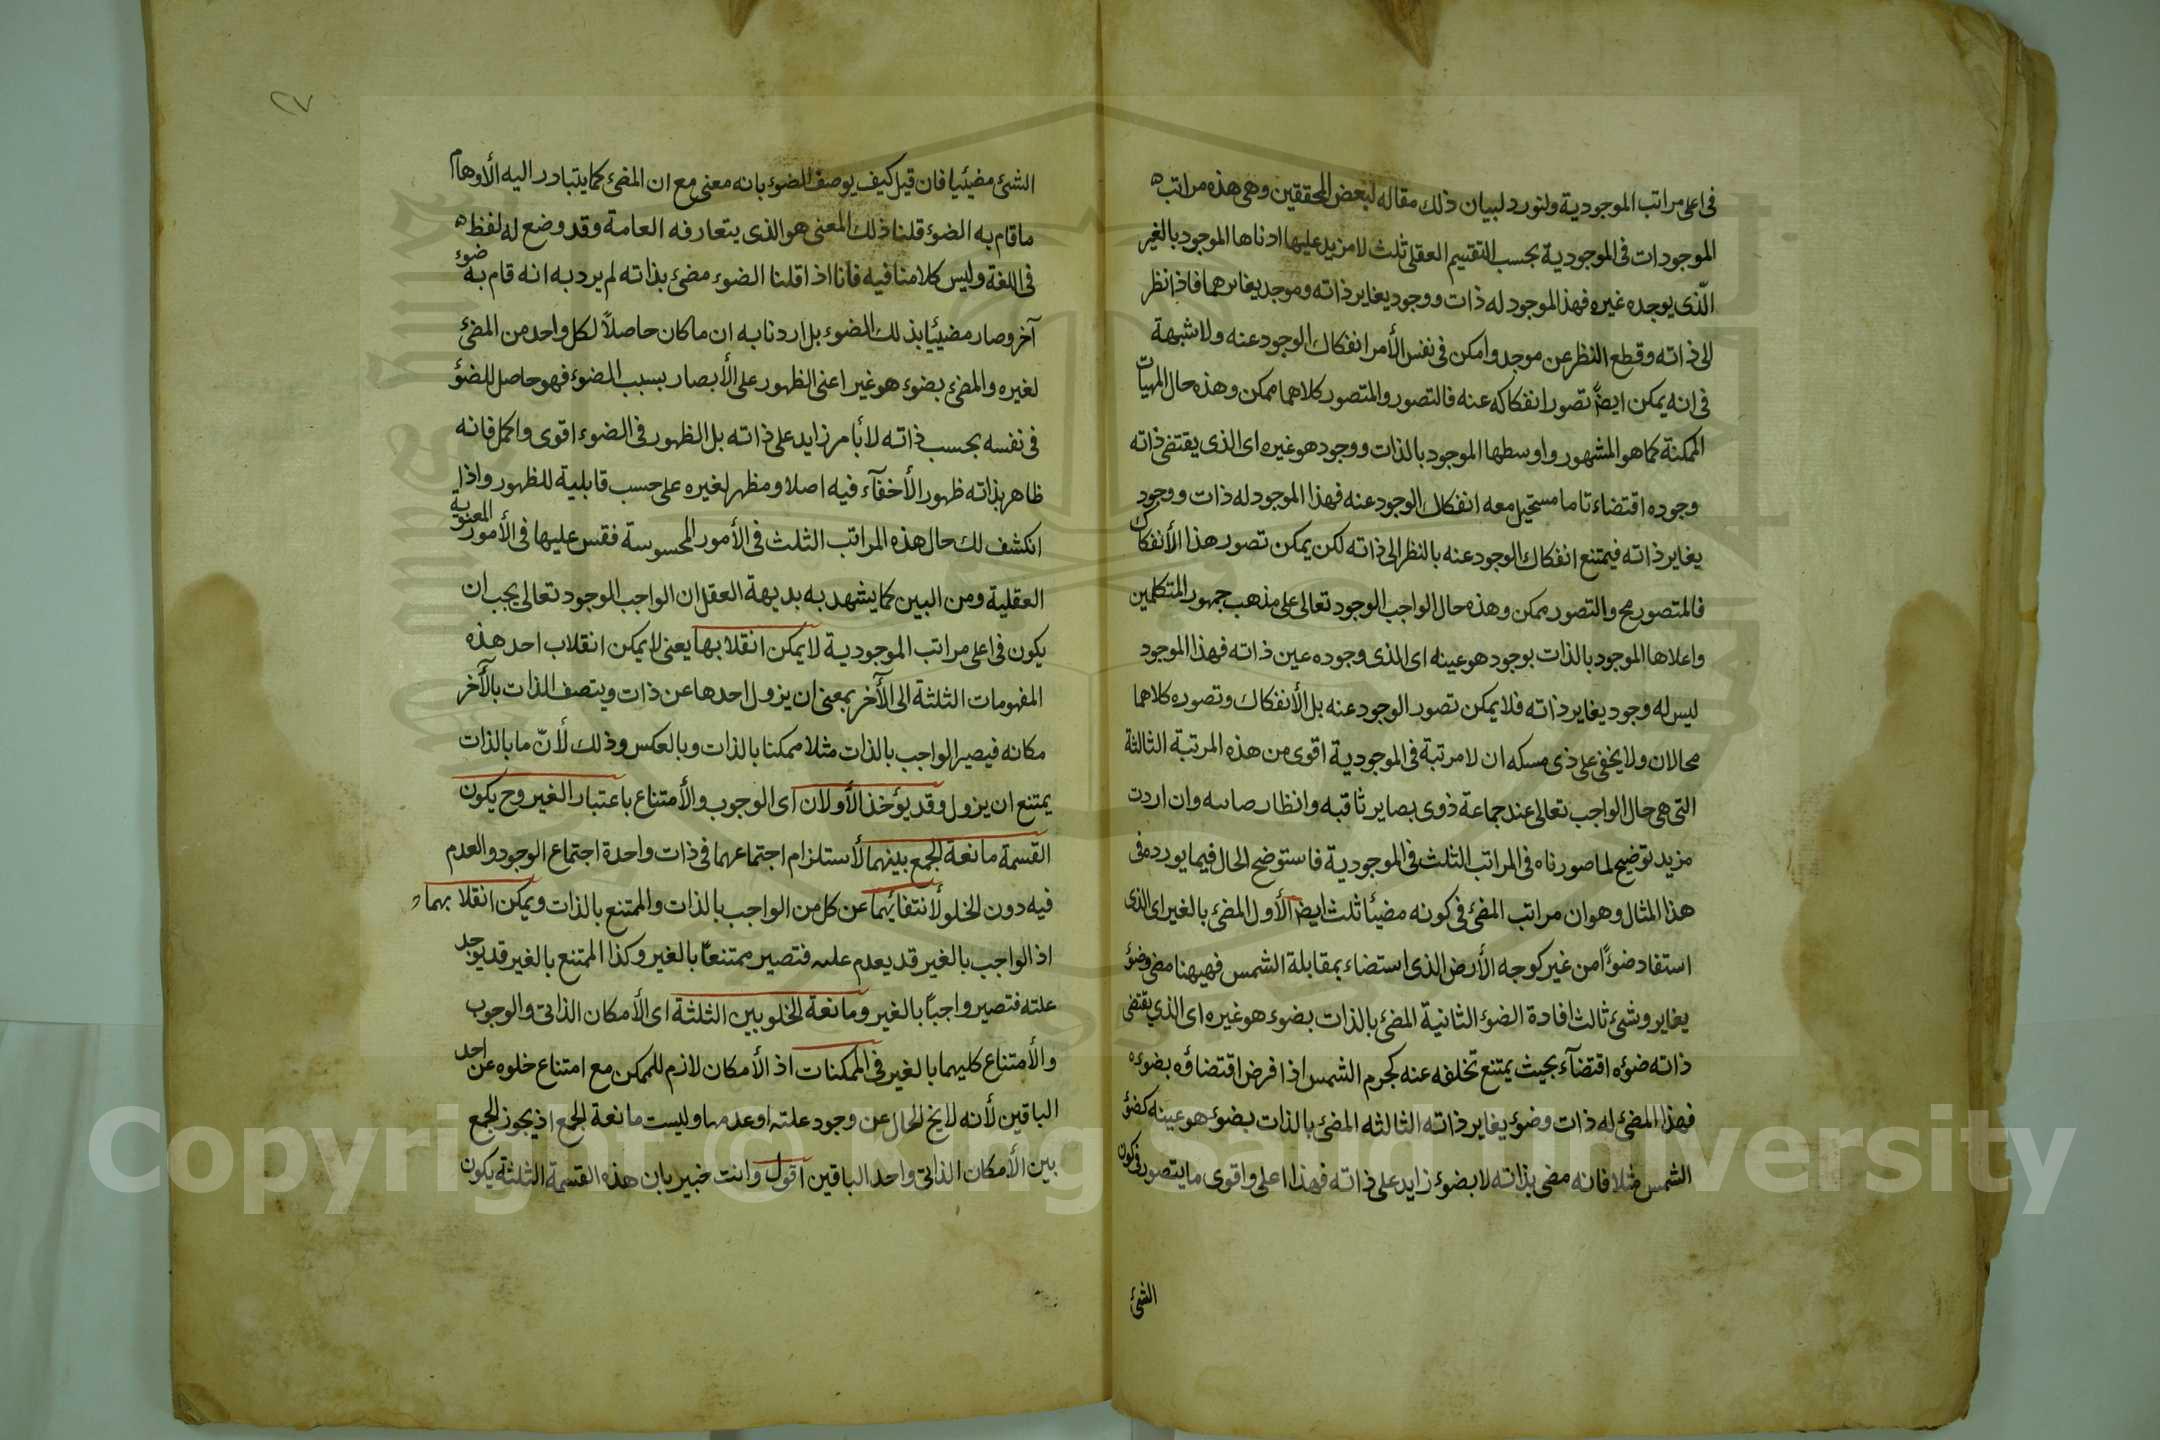 في اعلى مراتب الموجودية ولنورد لبيان ذلك مقاله لبعض المحققين وهي هذه مراتب
الموجودات في الموجودية بحسب التقسيم العقلى ثلث لا مزيد عليها ادناها الموجود بالغير
الّذى يوجده غيره فهذا الموجود له ذات ووجود يغاير ذاته وموجد يغايرهما فاذا نظر
الى ذاته وقطع النظر عن موجد وامكن في نفس الأمر انفكاك الوجود عنه ولا شبهة
في انه يمكن ايضاً تصور انفكاكه عنه فالتصور والمتصور كلاهما ممكن وهذه حال المهيات
الممكنة كما هو المشهور واوسطها الموجود بالذات ووجود هو غيره اى الذى يقتضى ذاته
وجوده اقتضاء تاما مستحيل معه انفكاك الوجود عنه فهذا الموجود له ذات ووجود
يغاير ذاته فيمتنع انفكاك الوجود عنه بالنظر الى ذاته لكن يمكن تصور هذا الأنفكاك
فالمتصور مح والتصور ممكن وهذه حال الواجب الوجود تعالى على مذهب جمهور المتكلمين
واعلاها الموجود بالذات بوجود هو عينه اى الذى وجوده عين ذاته فهذا الموجود
ليس له وجود يغاير ذاته فلا يمكن تصور الوجود عنه بل الأنفكاك وتصوره كلاهما
محالان ولا يخفى على ذى مسكه ان لا مرتبة في الموجودية اقوى من هذه المرتبة الثالثة
التى هى حال الواجب تعالى عند جماعة ذوى بصاير ثاقبه وانظار صايبه وان اردت
مزيد توضيح لما صورناه في المراتب الثلث في الموجودية فاستوضح الحال فيما يورده في
هذا المثال وهو ان مراتب المضئ في كونه مضيئا ثلث ايض الأول المضئ بالغير اى الذى
استفاد ضوءًا من غير كوجه الأرض الذى استضاء بمقابلة الشمس فهيهنا مضى وضوء
يغاير وشئ ثالث افادة الضوء الثانية المضئ بالذات بضوء هو غيره اى الذي يقتضى
ذاته ضوءه اقتضآء بحيث يمتنع تخلفه عنه كجرم الشمس اذا فرض اقتضاؤه بضوءه
فهذا المضئ له ذات وضوء يغاير ذاته الثالثه المضئ بالذات بضوء هو عينه كضوء
الشمس مثلا فانه مضى بذاته لا بضوء زايد على ذاته فهذا اعلى واقوى ما يتصور في كون
الشئ
الشئ مضيئيا فان قيل كيف يوصف الضوء بانه معنى مع ان المضئ كما يتبادر اليه الأوهام
ما قام به الضوء قلنا ذلك المعنى هو الذى يتعارفه العامة وقد وضع له لفظ
في اللغة وليس كلامنا فيه فانا اذا قلنا الضوء مضئ بذاته لم يرد به انه قام به ضوء
آخر وصار مضيئيا بذلك الضوء بل اردنا به ان ما كان حاصلاً لكل واحد من المضئ
لغيره والمضئ بضوء هو غير اعنى الظهور على الأبصار بسبب الضوء فهو حاصل للضوء
في نفسه بحسب ذاته لا بأمر زايد على ذاته بل الظهور في الضوء اقوى واكمل فانه
ظاهر بذاته ظهور الأخفآء فيه اصلا ومظهر لغيره على حسب قابلية للظهور واذا
انكشف لك حال هذه المراتب الثلث في الأمور المحسوسة فقس عليها في الأمور المعنوية
العقلية ومن البين كما يشهد به بديهة العقل ان الواجب الوجود تعالى يجب ان
يكون في اعلى مراتب الموجودية لا يمكن انقلابها يعنى لا يمكن انقلاب احد هذه
المفهومات الثلثة الى الآخر بمعنى ان يزول احدها عن ذات ويتصف الذات بالآخر
مكانه فيصير الواجب بالذات مثلا ممكنا بالذات وبالعكس وذلك لأنّ ما بالذات
يمتنع ان يزول وقد يؤخذ الأولان اى الوجوب والأمتناع باعتبار الغير وح يكون
القسمة مانعة الجمع بينهما لأستلزام اجتماعهما في ذات واحدة اجتماع الوجود والعدم
فيه دون الخلو لأنتفائهما عن كل من الواجب بالذات والممتنع بالذات ويمكن انقلابهما
اذ الواجب بالغير قد يعدم علته فتصير ممتنعاً بالغير وكذا الممتنع بالغير قد يوجد
علته فتصير واجباً بالغير ومانعة الخلو بين الثلثة اى الأمكان الذاتى والوجوب
والأمتناع كليهما بالغير في الممكنات اذ الأمكان لازم للممكن مع امتناع خلوه عن احد
الباقين لأنه لا يخ الحال عن وجود علته او عدمها وليست مانعة الجمع اذ يجوز الجمع
بين الأمكان الذاتى واحد الباقين اقول وانت خبير بان هذه القسمة الثلثة يكون
Copyright © King Saud University